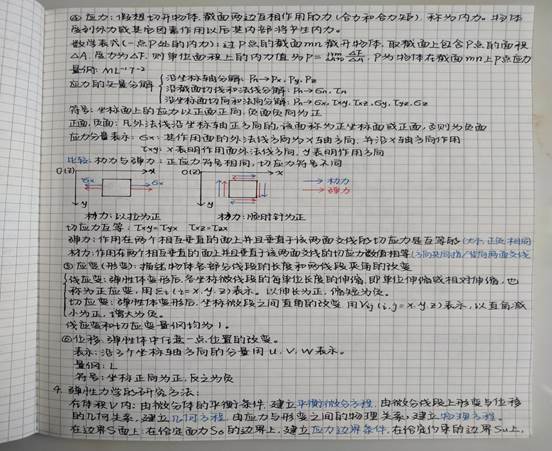 ② 应力：假想切开物体，截面两边互相作用的力(合力和合力矩)，称为内力。物体
受到外力或其它因素作用以后其内部将产生内力。
数学表式(一点P处的内力)：过P点的截面mn截开物体，取截面上包含P点的面积
ΔA，应力为ΔF，则单位面积上的内力值为P=lim ΔF/ΔA，P为物体在截面mn上P点应力
量纲：ML⁻¹T⁻²
应力的矢量分解
沿坐标轴分解：Pn→Px，Py，Pz
沿截面切线和法线分解：Pn→σn，τn
沿坐标面切向和法向分解：Pn→σx，τxy，τxz，σy，τyz，σz
符号：坐标面上的应力以正面正向，负面负向为正
正面，负面：凡外法线沿坐标轴正方向的，该面称为正坐标面或正面，否则为负面
应力分量表示：σx：其作用面的外法线方向为x轴方向，并沿x轴方向作用
τxy：x表明作用面外法线方向，y表明作用方向
比较：材力与弹力：正应力符号相同，切应力符号不同
O(z) x O(z) x → 材力
σx σx → 弹力
y y
材力：以拉为正 材力：顺时针为正
切应力互等：τxy=τyx τxz=τzx
弹力：作用在两个相互垂直的面上并且垂直于该两面交线的切应力是互等的(大小，正负相同)
材力：作用在两个相互垂直的面上并且垂直于该两面交线的切应力数值相等(方向共同指/背向两面交线)
③ 应变(形变)：描述物体各部分线段的长度和两线段夹角的改变
线应变：弹性体变形后，各坐标微线段的每单位长度的伸缩，即单位伸缩或相对伸缩，也
称为正应变，用εi(i=x，y，z)表示。以伸长为正，缩短为负。
切应变：弹性体变形后，坐标微段之间直角的改变，用γij(i，j=x，y，z)表示，以直角减
小为正，增大为负。
线应变和切应变量纲均为1。
④ 位移：弹性体中任意一点，位置的改变。
表示：沿3个坐标轴方向的分量用u，v，w表示。
量纲：L
符号：坐标正向为正，反之为负
4. 弹性力学的研究方法：
在体积V内：由微分体的平衡条件，建立平衡微分方程，由微分线段上形变与位移
的几何关系，建立几何方程，由应力与形变之间的物理关系，建立物理方程。
在边界S面上：在给定面力Sσ的边界上，建立应力边界条件，在给定约束的边界Su上，